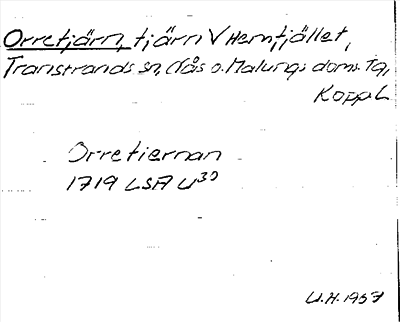 Orretjärn, tjärn V Hemfjället,
Transtrands sn, Nås o. Malungs doms. tg,
Kopp. L
Orretiernan
1719 LSA U30
U.H. 1957